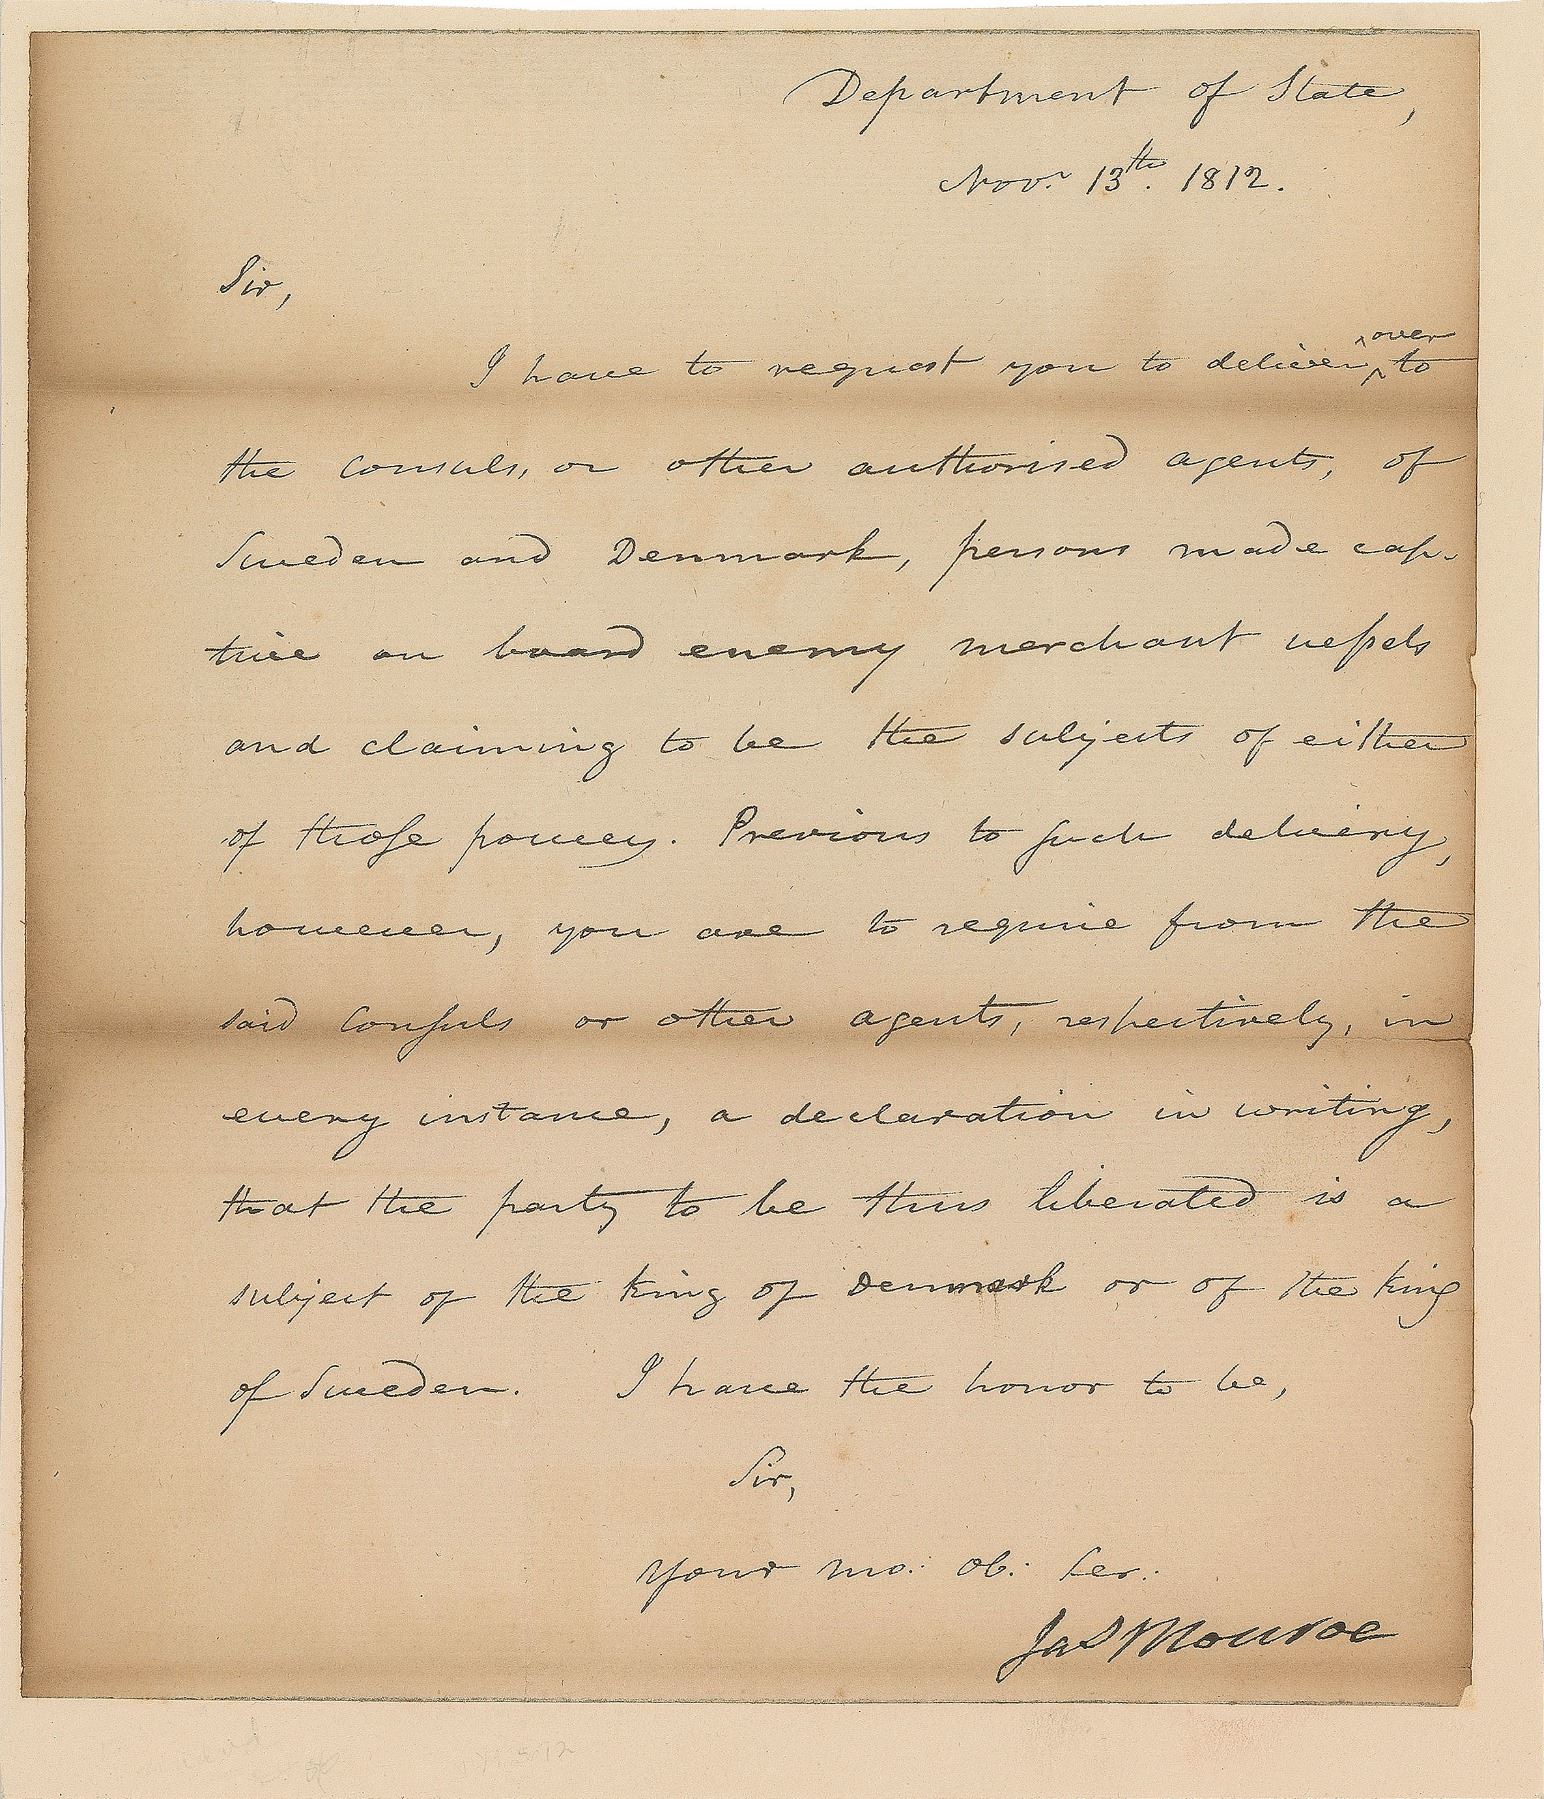 Department of State,
Nov.r 13th. 1812.
Sir,
I have to request you to deliver over to
the consuls, or other authorised agents, of
Sweden and Denmark, persons made cap-
tive on board enemy merchant vessels
and claiming to be the subjects of either
of those powers. Previous to such delivery,
however, you are to require from the
said consuls or other agents, respectively, in
every instance, a declaration in writing,
that the party to be thus liberated is a
subject of the king of Denmark or of the king
of Sweden. I have the honor to be,
Sir,
Your mo: ob: Ser:
Jas Monroe